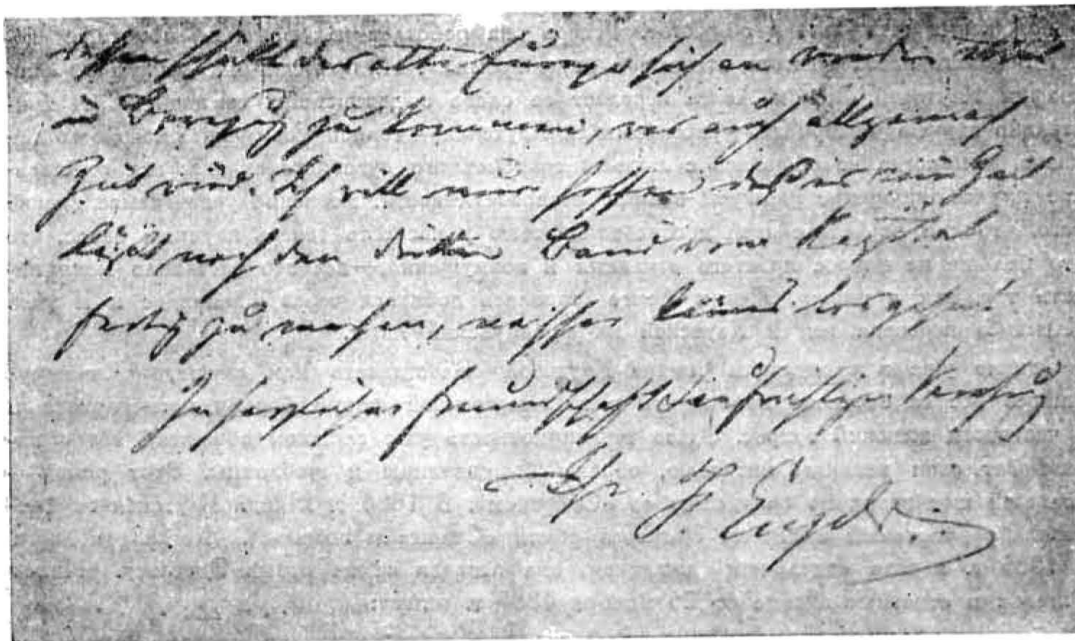 das alte Europa sich an wieder etwas
in Bewegung zu kommen, was auch allgemach
Zeit wird. Ich will nur hoffen daß es mir Zeit
läßt noch den dritten Band vom Kapital
fertig zu machen, nachher kann's losgehn!
In herzlicher Freundschaft & aufrichtiger Verehrung
Ihr F. Engels